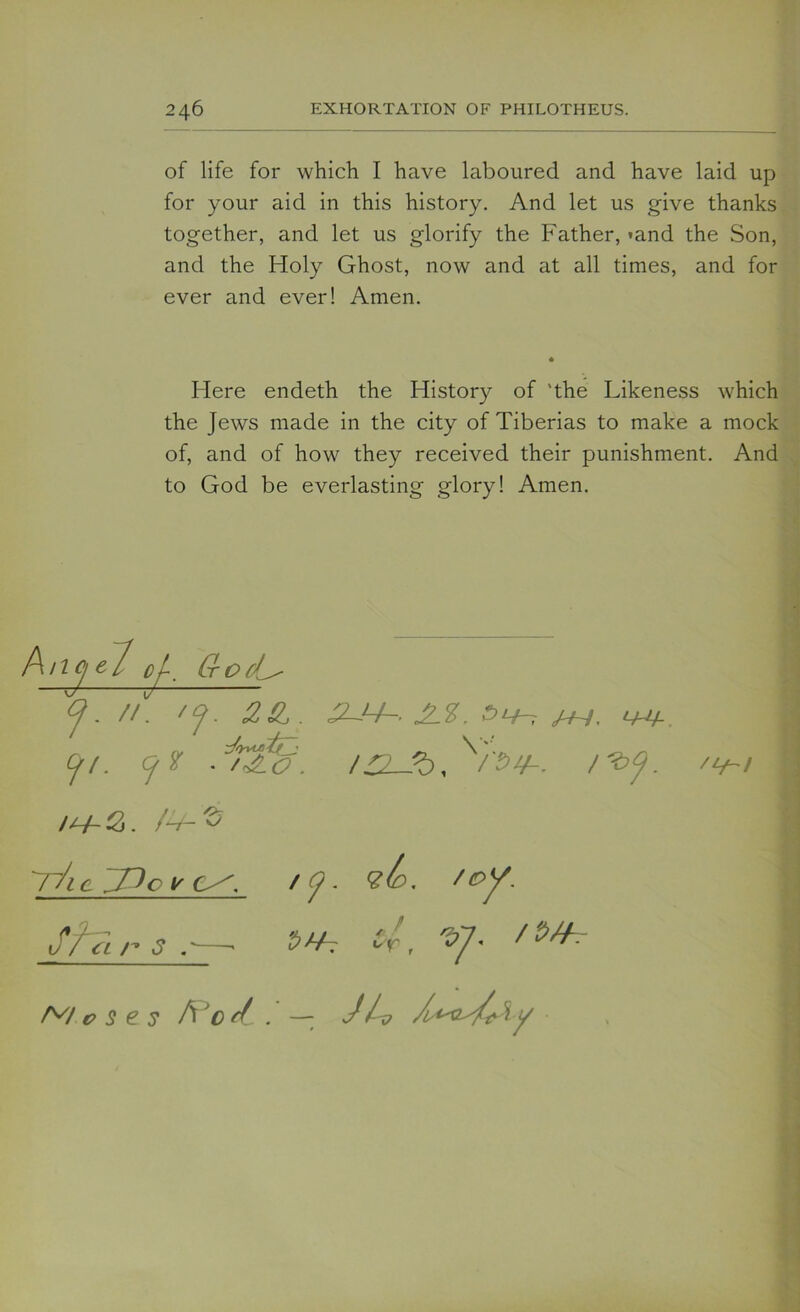 246 EXHORTATION OF PHILOTHEUS.
of life for which I have laboured and have laid up
for your aid in this history. And let us give thanks
together, and let us glorify the Father, and the Son,
and the Holy Ghost, now and at all times, and for
ever and ever! Amen.
Here endeth the History of 'the Likeness which
the Jews made in the city of Tiberias to make a mock
of, and of how they received their punishment. And
to God be everlasting glory! Amen.
Angel of God
9. 11. 19. 22. 24. 28. 34, 44.
91. 98. 120. 123, 134. 139. 141
142. 143
The Dove. 19. 107.
Stars. 34. 37. 134.
Moses Rod. —